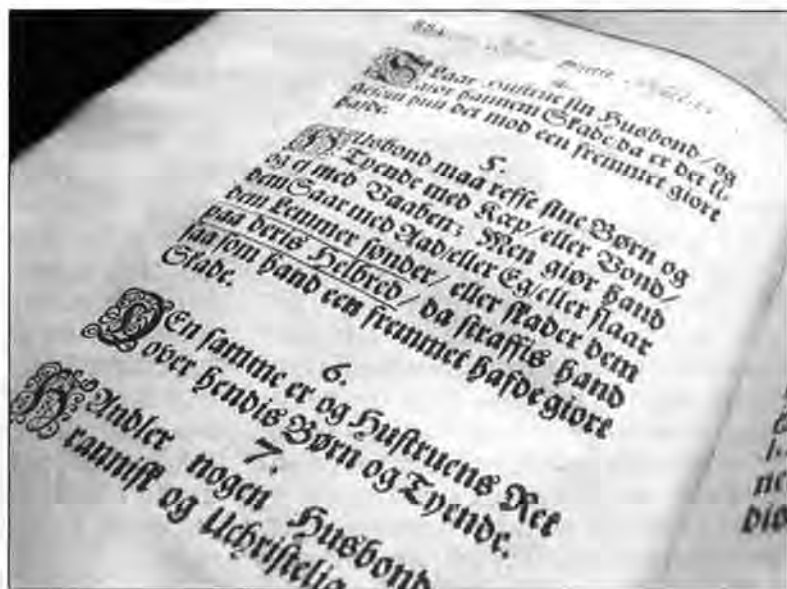 SLaar Hustrue sin Husbond/ og
giør hannem Skade/ da er det li-
gesom hun det mod een fremmet giort
hafde.
5.
HUsbond maa refse sine Børn og
Tyende med Kæp/ eller Vond/
og ej med Vaaben; Men giør hand
dem Saar med Aad/ eller Eg/ eller slaar
dem Lemmer sønder/ eller skader dem
paa deris Helbred/ da straffis hand
saa som hand een fremmet hafde giort
Skade.
6.
DEn samme er og Hustruens Ret
over hendis Børn og Tyende.
7.
HAndler nogen Husbond
rannisk og Uchristelig